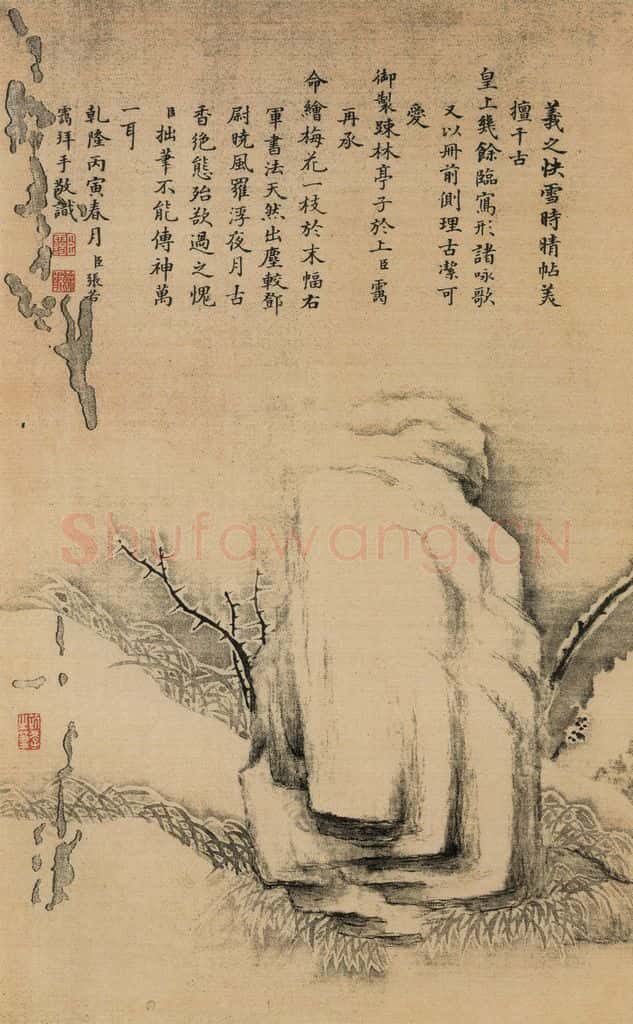 羲之快雪時晴帖美
擅千古
皇上幾餘臨寫形諸咏歌
又以冊前側理古潔可
愛
御製踈林亭子於上臣靄
再承
命繪梅花一枝於末幅右
軍書法天然出塵較鄧
尉曉風羅浮夜月古
香絶態殆欲過之愧
臣拙筆不能傳神萬
一耳
乾隆丙寅春月臣張若
靄拜手敬識
Shufawang.CN